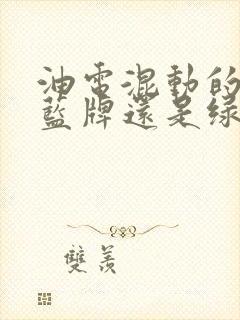 油電混動的
藍牌還是綠
雙羨